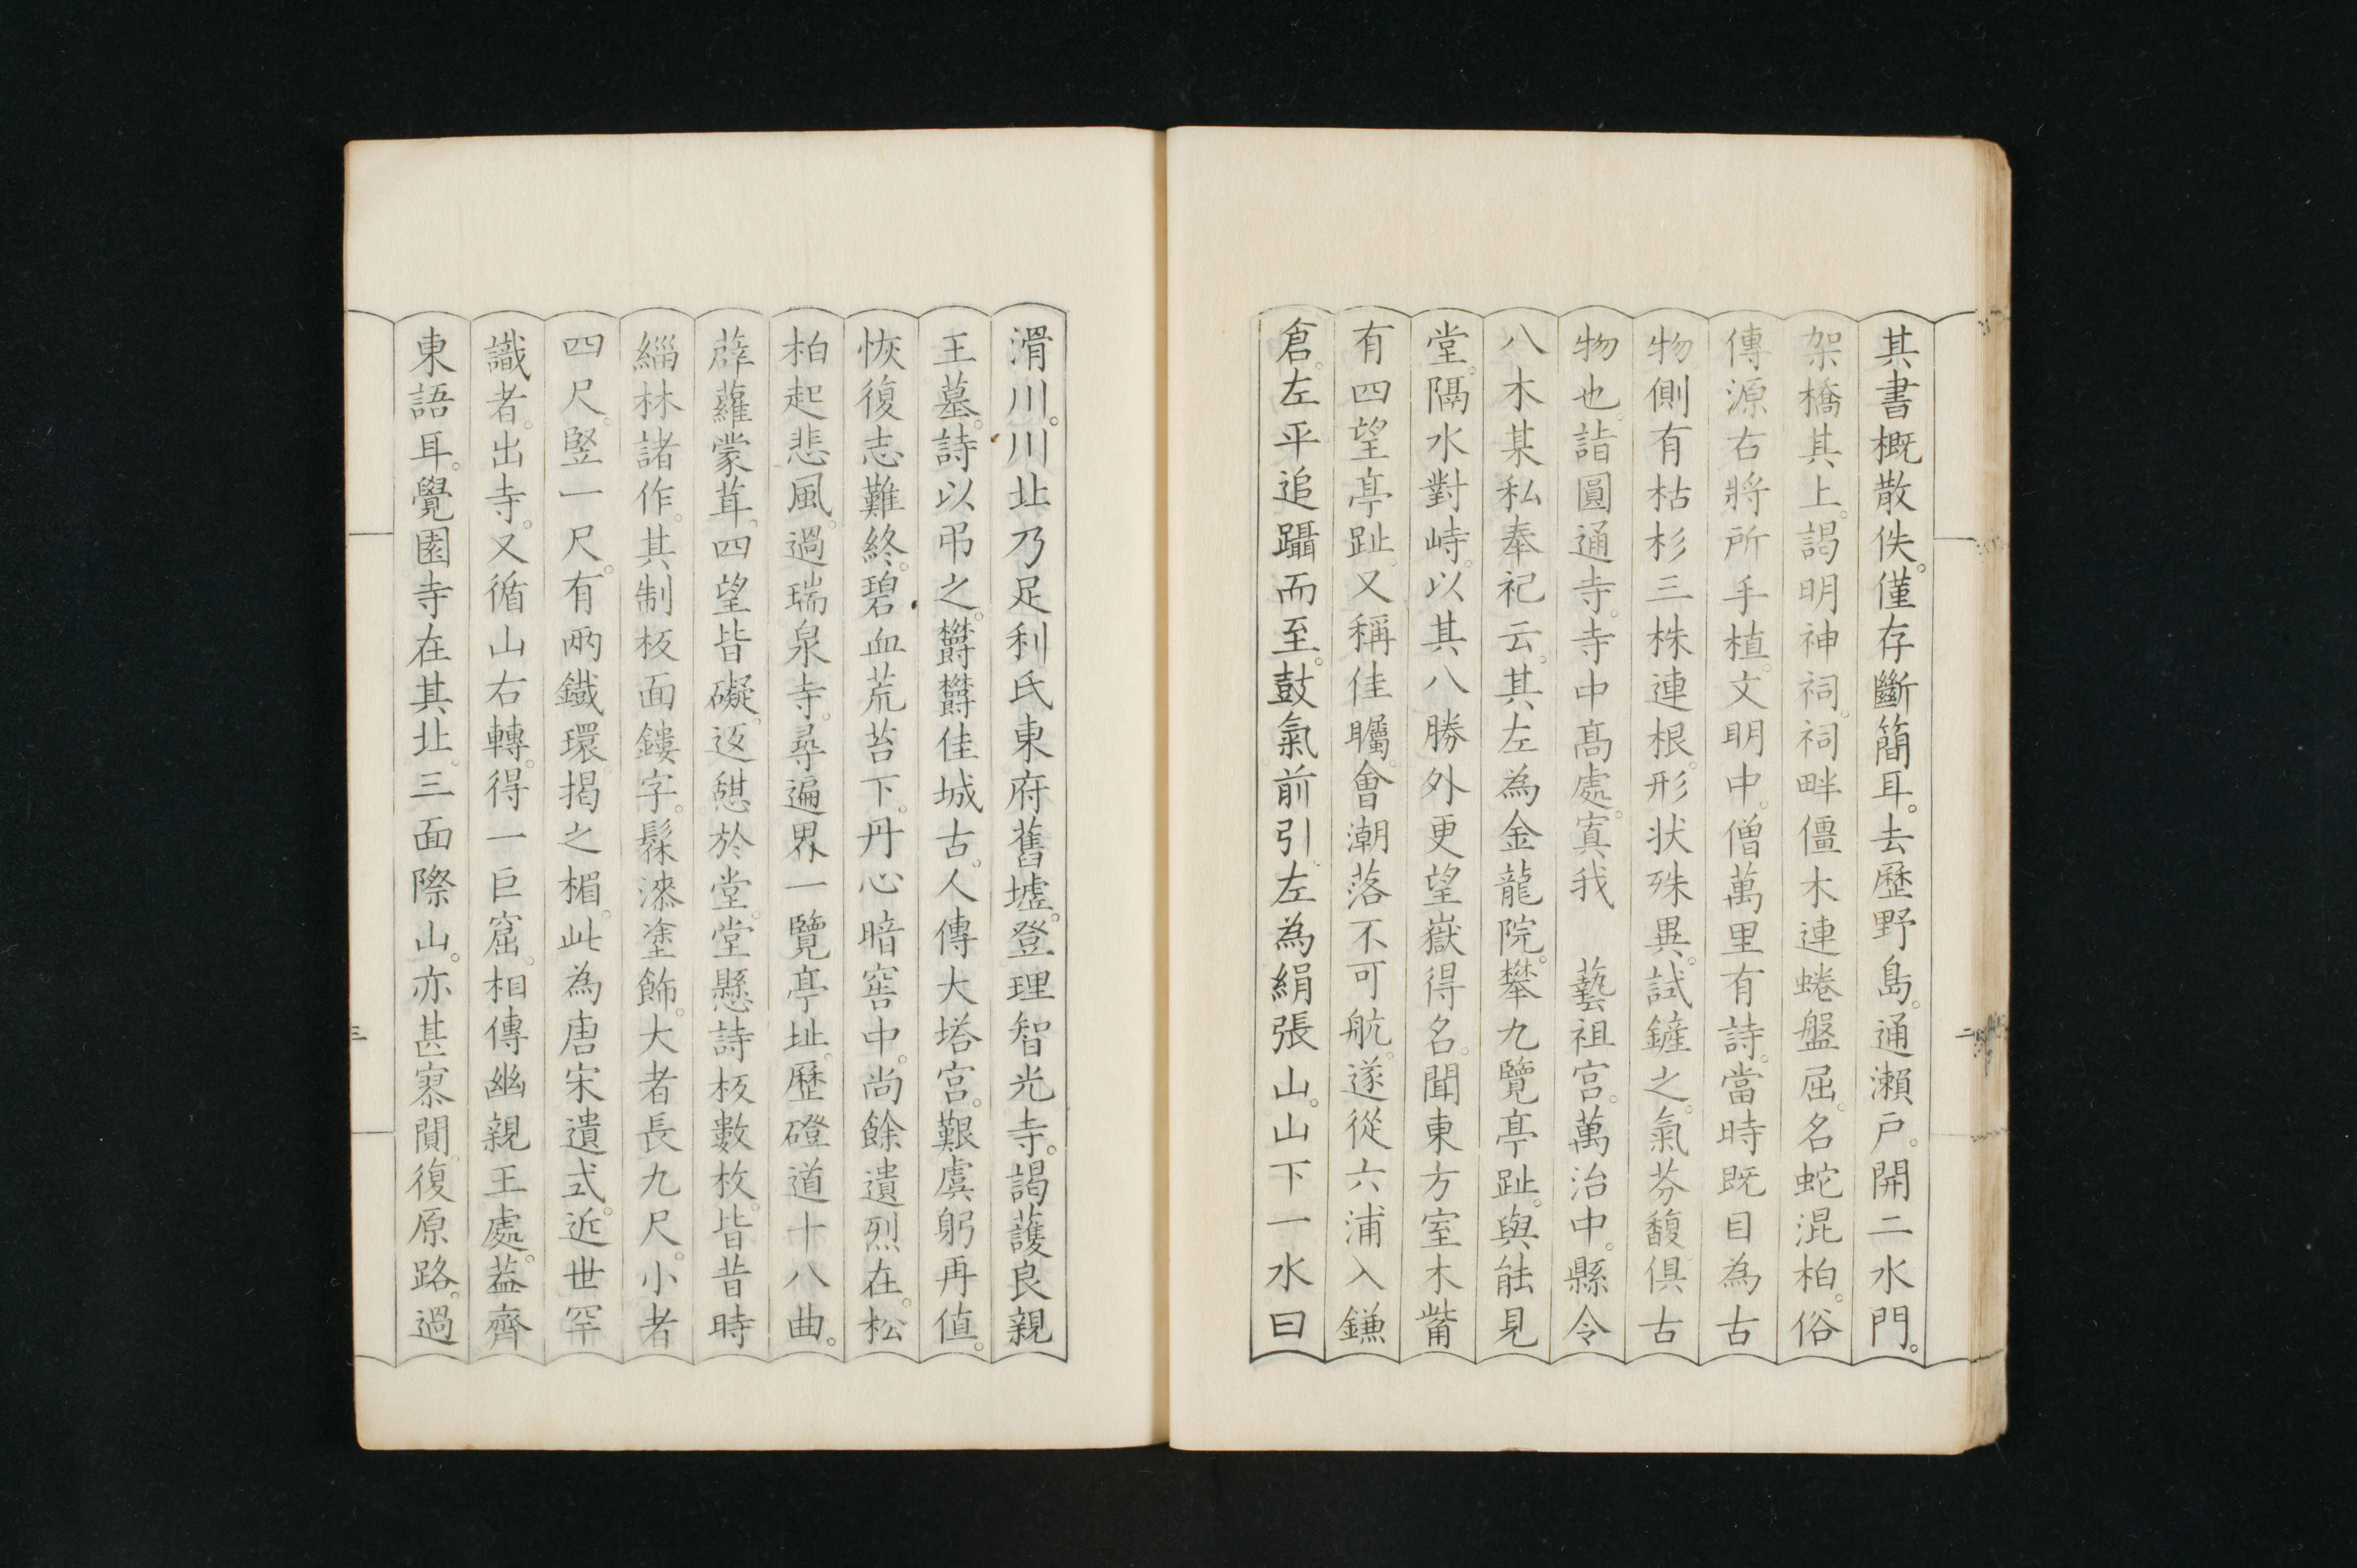 其書概散佚。僅存斷簡耳。去歷野島。通瀨戶。開二水門。
架橋其上。謁明神祠。祠畔僵木連蜷盤屈。名蛇混柏。俗
傳源右將所手植。文明中。僧萬里有詩。當時既目為古
物。側有枯杉三株連根。形狀殊異。試鏟之。氣芬馥俱古
物也。詣圓通寺。寺中髙處。寘我　藝祖宮。萬治中。縣令
八木某私奉祀云。其左為金龍院。攀九覽亭趾。與能見
堂。隔水對峙。以其八勝外更望嶽得名。聞東方室木觜
有四望亭趾。又稱佳矚。會潮落不可航。遂從六浦入鎌
倉。左平追躡而至。鼓氣前引。左為絹張山。山下一水曰
滑川。川北乃足利氏東府舊墟。登理智光寺。謁護良親
王墓。詩以弔之。欝欝佳城古。人傳大塔宮。艱虞躬再值。
恢復志難終。碧血荒苔下。丹心暗窖中。尚餘遺烈在。松
柏起悲風。過瑞泉寺。尋遍界一覽亭址。歷磴道十八曲。
薜蘿蒙茸。四望皆礙。返憇於堂。堂懸詩板數枚。皆昔時
緇林諸作。其制板面鏤字。髹漆塗飾。大者長九尺。小者
四尺。竪一尺。有兩鐵環揭之楣。此為唐宋遺式。近世罕
識者。出寺。又循山右轉。得一巨窟。相傳幽親王處。葢齊
東語耳。覺園寺在其北。三面際山。亦甚寂閴。復原路。過
二
三